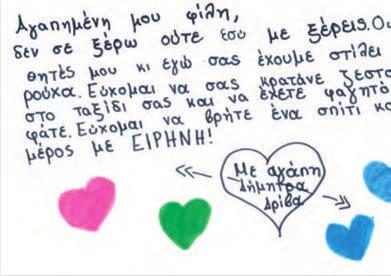 Αγαπημένη μου φίλη,
δεν σε ξέρω ούτε εσύ με ξέρεις. Οι
θητές μου κι εγώ σας έχουμε στίλει
ρούχα. Εύχομαι να σας κρατάνε ζεστο
στο ταξίδι σας και να έχετε φαγητό
φάτε. Εύχομαι να βρήτε ένα σπίτι κα
μέρος με ΕΙΡΗΝΗ!
Με αγάπη
Δήμητρα
Δρίβα